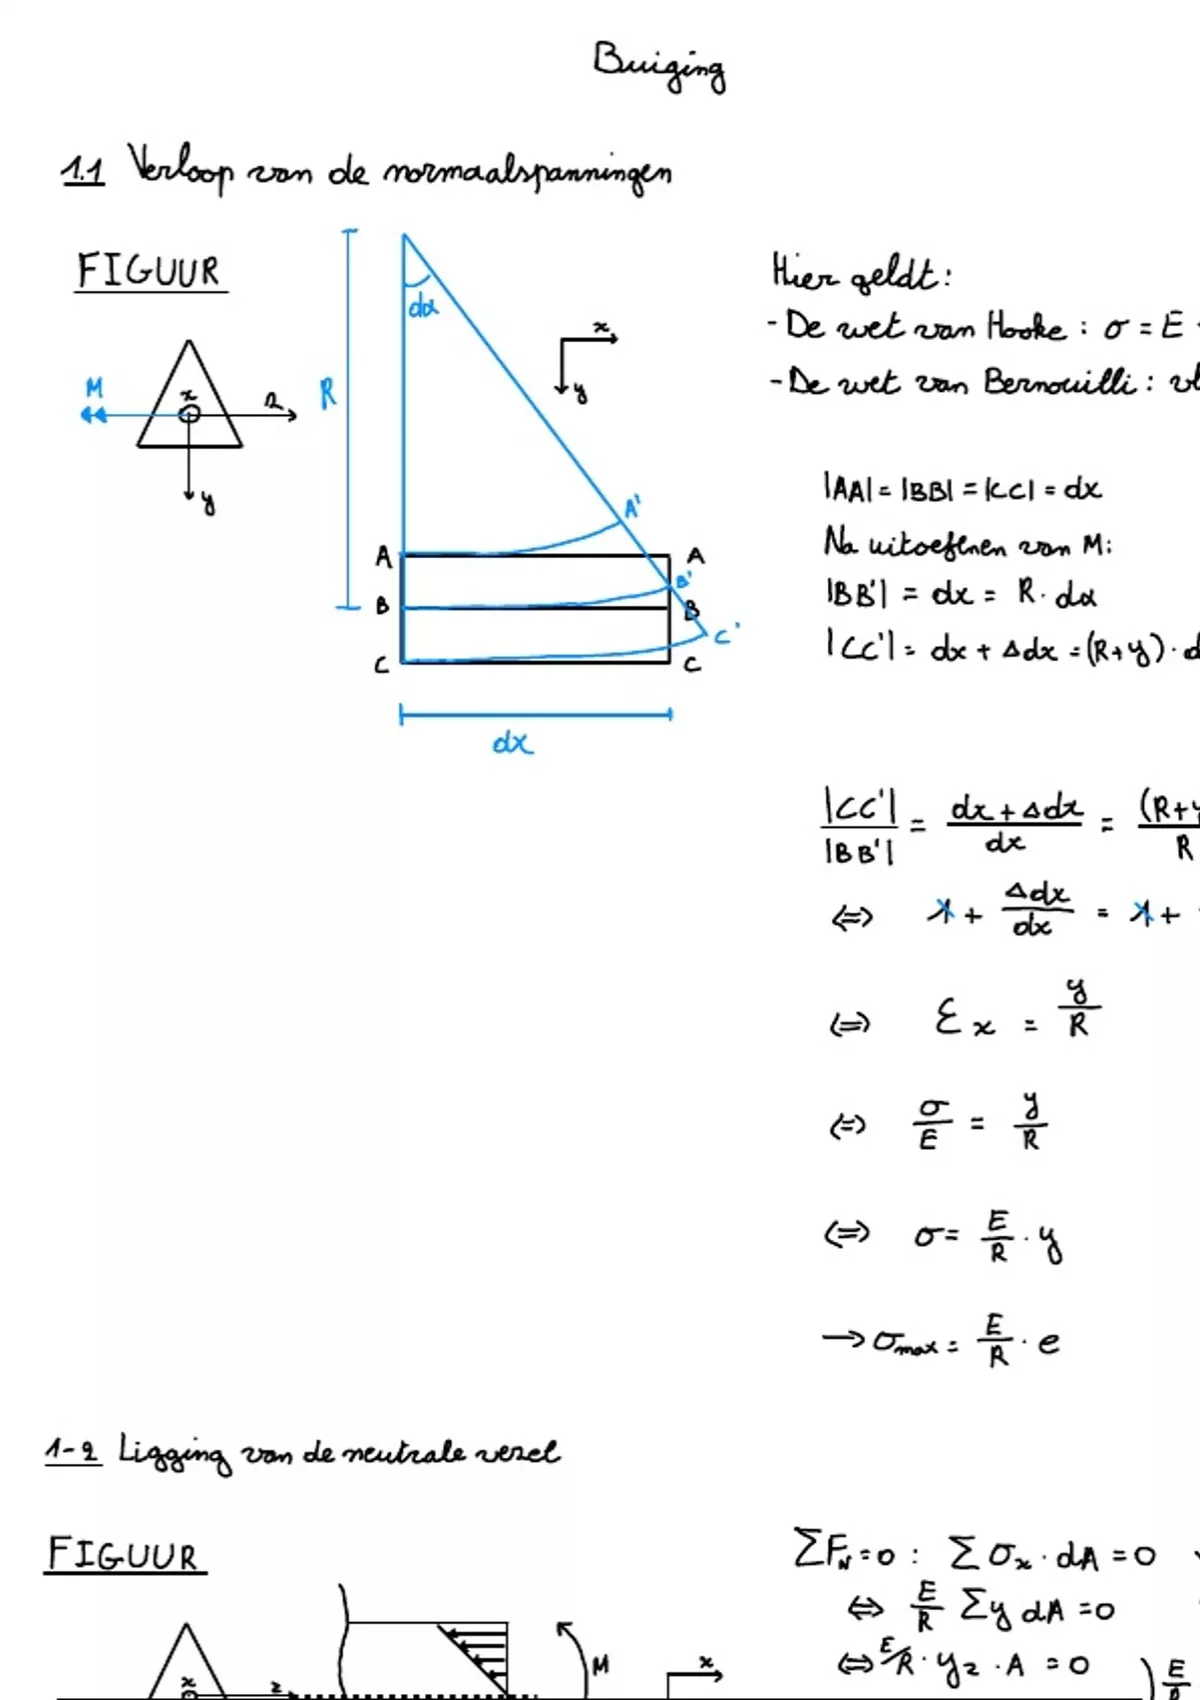 Buiging
1.1 Verloop van de normaalspanningen
FIGUUR
M
x
z
y
R
dα
x
y
A'
A
A
B'
B
B
C'
C
C
dx
Hier geldt:
- De wet van Hooke : σ = E
- De wet van Bernouilli :
|AA| = |BB| = |CC| = dx
Na uitoefenen van M:
|BB'| = dx = R · dα
|CC'| = dx + Δdx = (R+y) ·
|CC'| / |BB'| = (dx + Δdx) / dx = (R+y / R
⇔ 1 + Δdx / dx = 1 +
⇔ Ɛx = y / R
⇔ σ / E = y / R
⇔ σ = E / R · y
→ σmax = E / R · e
1-2 Ligging van de neutrale vezel
FIGUUR
x
z
M
x
ΣFN = 0 : Σ σx · dA = 0
⇔ E / R Σ y dA = 0
⇔ E/R · yz · A = 0
E